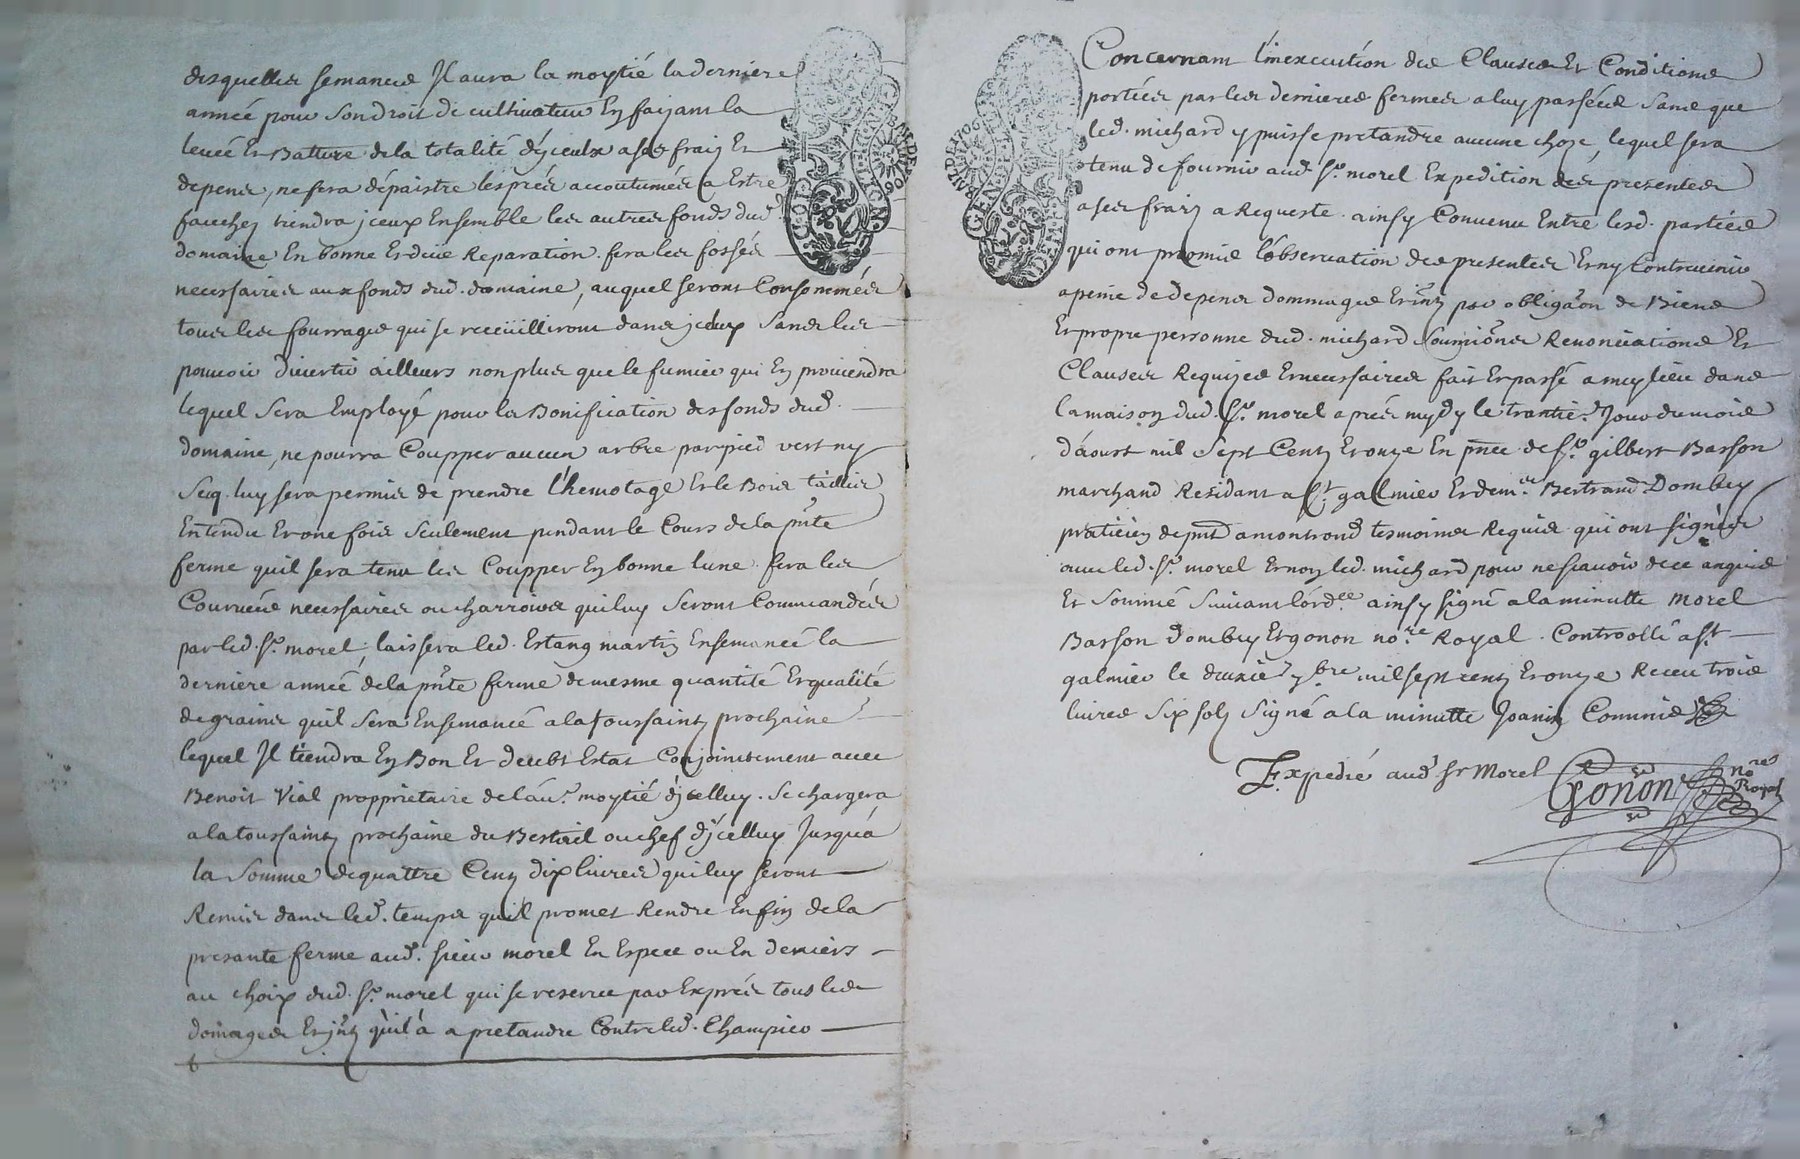 desquelles semances Jl aura la moytié la derniere
année pour son droit de cultivateur En faisant la
levée Et Batture de la totalité d'jceulx a ses fraiz Et
depens, ne fera dépaistre les prés accoutumés a Estre
fauchez tiendra jceux Ensemble les autres fonds dud.
domaine En bonne Et düe Reparation. fera les fossés
necessaires aux fonds dud. domaine, auquel seront Consommés
tous les fourrages qui se recüilliront dans jceux Sans les
pouvoir divertir ailleurs non plus que le fumier qui En proviendra
lequel Sera Employé pour la Bonification des fonds dud.
domaine, ne pourra Coupper aucun arbre par pied vert ny
Secq. luy sera permis de prendre l'hemotage Et le Bois taillis
Entendu Et one fois Seulement pendant le Cours de la pnte
ferme quil sera tenu les Coupper En bonne lune. fera les
Courvées necessaires ou charrois qui luy Seront Commandés
par led. Sr. morel, laissera led. Estang martin Ensemancé la
derniere année de la pnte ferme de mesme quantité Et qualité
de grains quil Sera Ensemancé a la toussaintz prochaine
lequel Jl tiendra En Bon Et deubt Estat Conjointement avec
Benoit Vial propprietaire de l'au. moytié d'jcelluy. Se chargera
a la toussaintz prochaine du Bestail ou chef d'jcelluy Jusqu'a
la Somme de quattre Centz dix livres qui luy seront
Remis dans led. temps quil promet Rendre En fin de la
presante ferme aud. sieur morel En Espece ou En deniers
au choix dud. Sr. morel qui se reserve par Exprés tous les
domages Et jntz qu'il a a pretandre Contre led. Champier
Concernant l'inexecution des Clauses Et Conditions
portées par les dernieres fermes a luy passées Sans que
led. michard y puisse pretandre aucune choze, lequel sera
tenu de fournir aud. Sr. morel Expedition des presentes
a ses fraiz a Requeste. ainsy Convenu Entre lesd. parties
qui ont promis l'observation des presentes Et ny Contrevenir
a peine de depens dommages Et intz par obligaon de Biens
Et propre personne dud. michard Soumions Renonciations Et
Clauses Requizes Et necessaires fait Et passé a meylieu dans
la maison dud. Sr. morel aprés mydy le trantie. Jour du mois
d'aoust mil Sept Centz Et onze En pnce de Sr. gilbert Basson
marchand Residant a St. galmier Et de me. Bertrand Dombey
praticien de pnt a montrond tesmoins Requis qui ont signés
avec led. Sr. morel Et non led. michard pour ne scavoir de ce anquis
Et Sommé Suivant l'ordce. ainsy signé a la minutte Morel
Basson Dombey Et gonon nore. Royal. Controollé a St.
galmier le deuxie. 7bre mil sept centz Et onze Receu trois
livres Six solz Signé a la minutte Joanin Commis
Expedié aud. Sr Morel
Gonon nore Royal